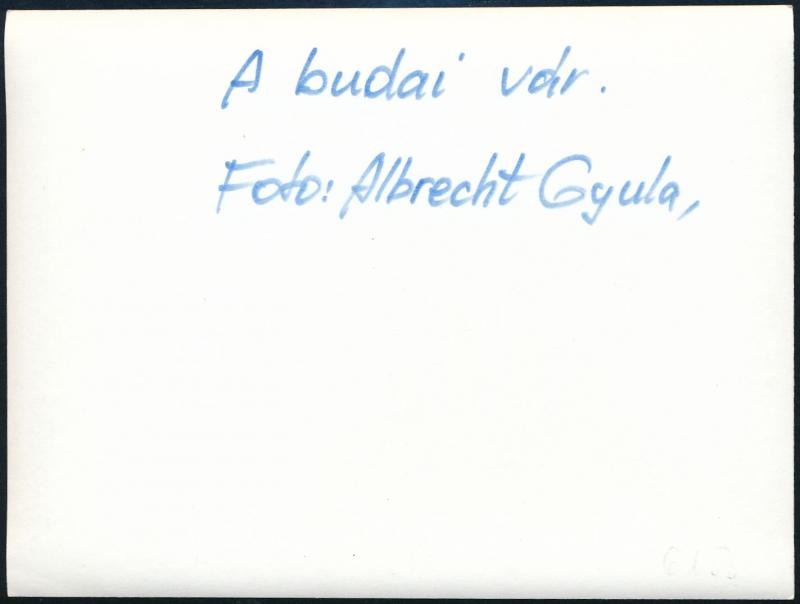 A budai vár.
Foto: Albrecht Gyula,